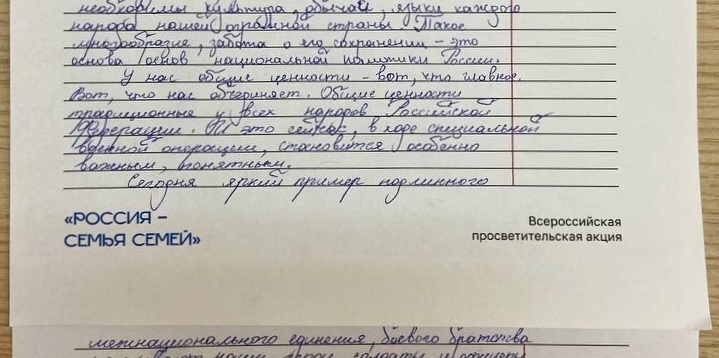 необходимы культура, обычаи, языки каждого
народа нашей огромной страны. Такое
многообразие, забота о его сохранении – это
основа основ национальной политики России.
У нас общие ценности – вот, что главное.
Вот, что нас объединяет. Общие ценности
традиционные у всех народов Российской
Федерации. И это сейчас, в ходе специальной
военной операции, становится особенно
важным, понятным.
Сегодня яркий пример подлинного
«РОССИЯ –
СЕМЬЯ СЕМЕЙ»
Всероссийская
просветительская акция
межнационального единения, боевого братства
наши герои солдаты и офицеры